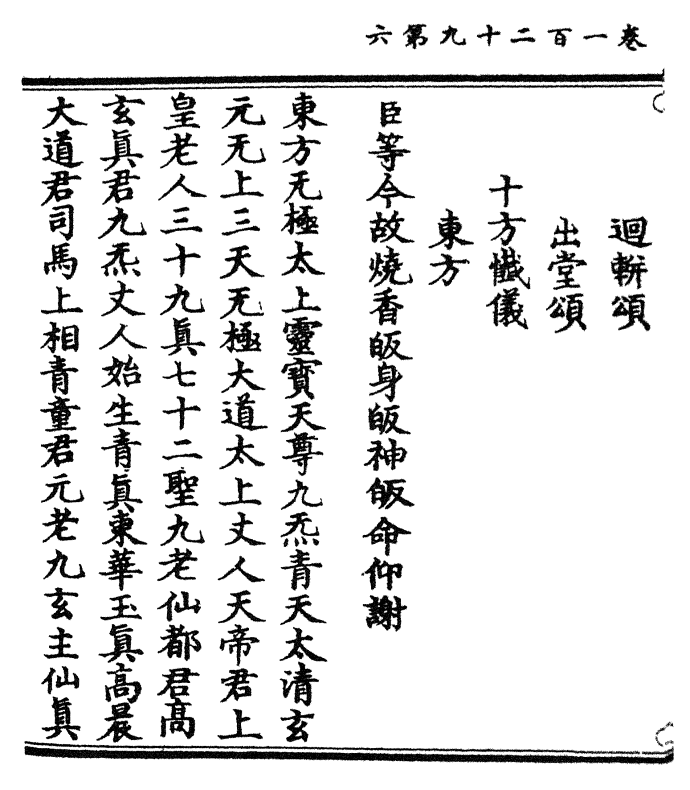 卷一百二十九第六
迴軿頌
出堂頌
十方懺儀
東方
臣等今故燒香皈身皈神皈命仰謝
東方无極太上靈寶天尊九炁青天太清玄
元无上三天无極大道太上丈人天帝君上
皇老人三十九眞七十二聖九老仙都君高
玄眞君九炁丈人始生青眞東華玉眞高晨
大道君司馬上相青童君元老九玄主仙眞